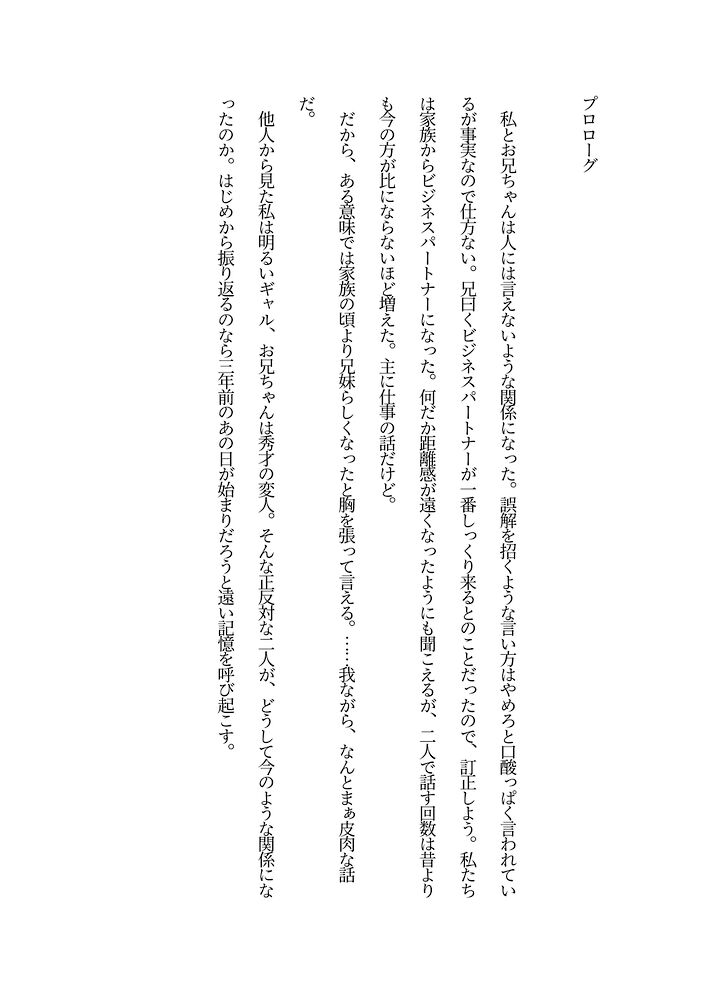 プロローグ
私とお兄ちゃんは人には言えないような関係になった。誤解を招くような言い方はやめろと口酸っぱく言われてい
るが事実なので仕方ない。兄曰くビジネスパートナーが一番しっくり来るとのことだったので、訂正しよう。私たち
は家族からビジネスパートナーになった。何だか距離感が遠くなったようにも聞こえるが、二人で話す回数は昔より
も今の方が比にならないほど増えた。主に仕事の話だけど。
だから、ある意味では家族の頃より兄妹らしくなったと胸を張って言える。……我ながら、なんとまぁ皮肉な話
だ。
他人から見た私は明るいギャル、お兄ちゃんは秀才の変人。そんな正反対な二人が、どうして今のような関係にな
ったのか。はじめから振り返るのなら三年前のあの日が始まりだろうと遠い記憶を呼び起こす。